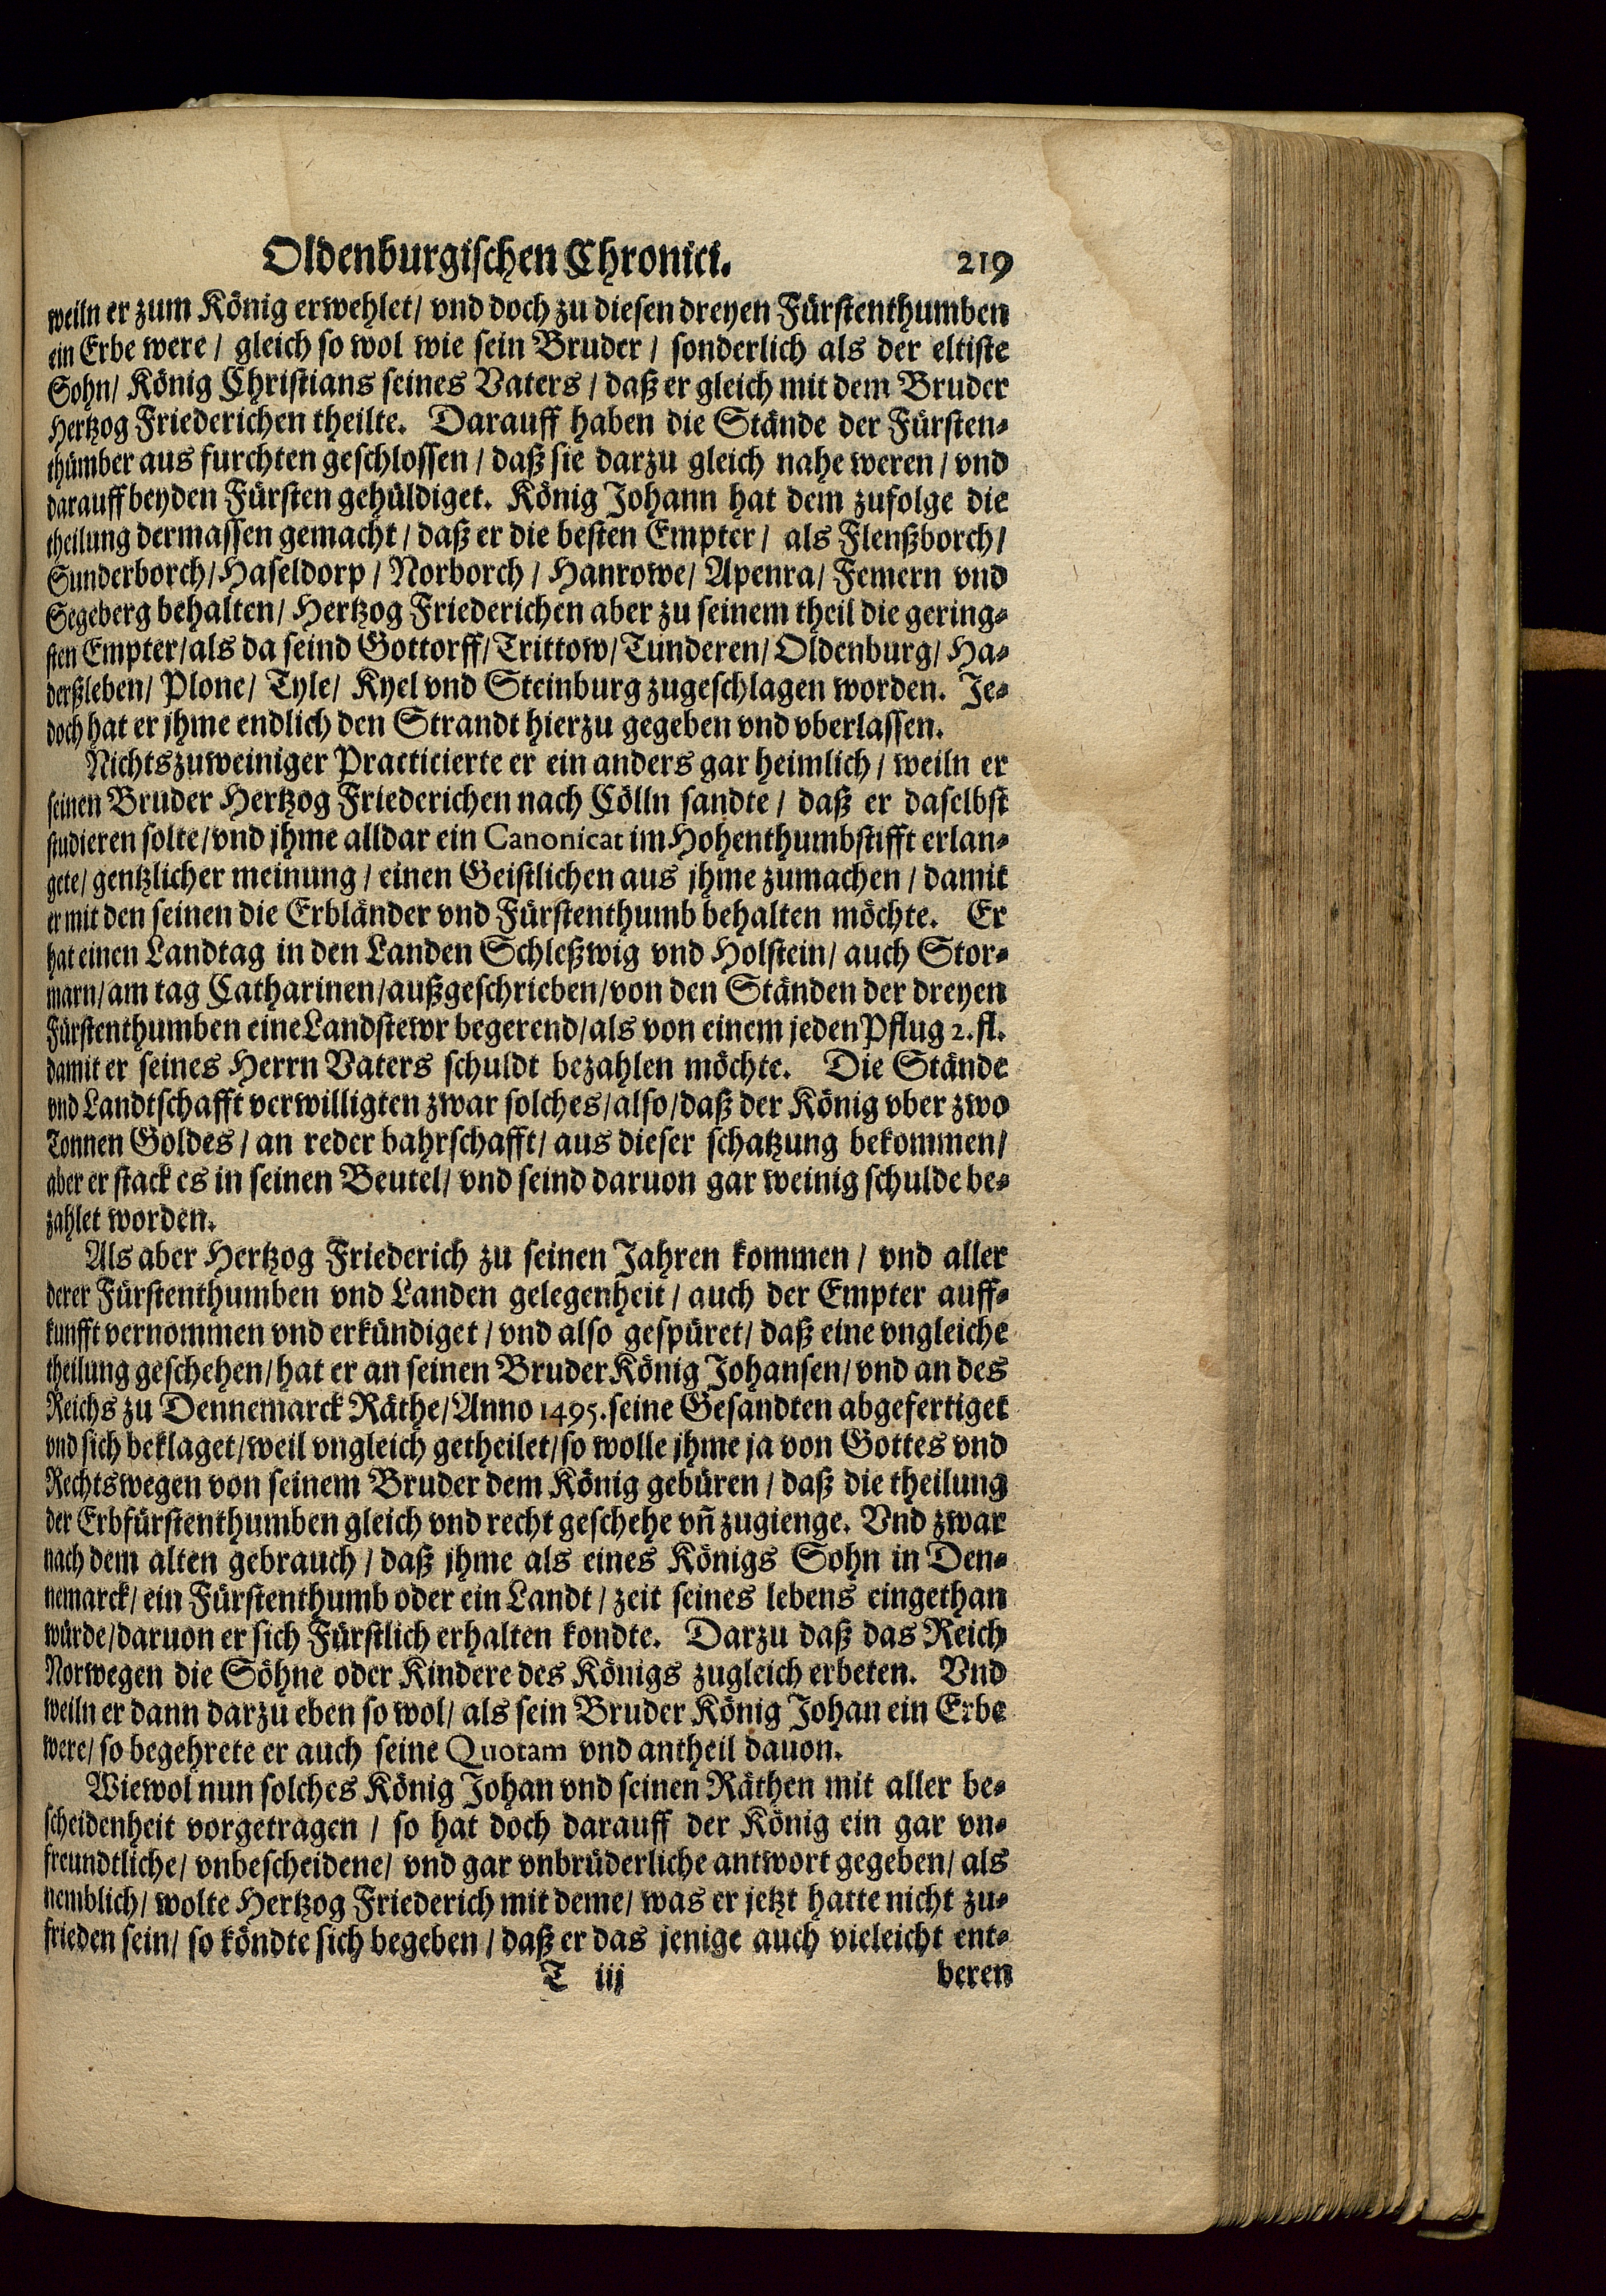 Oldenburgischen Chronici. 219
weiln er zum König erwehlet/ vnd doch zu diesen dreyen Fürstenthumben
ein Erbe were / gleich so wol wie sein Bruder / sonderlich als der eltiste
Sohn/ König Christians seines Vaters / daß er gleich mit dem Bruder
Hertzog Friederichen theilte. Darauff haben die Stände der Fürsten-
thümber aus furchten geschlossen / daß sie darzu gleich nahe weren / vnd
darauff beyden Fürsten gehüldiget. König Johann hat dem zufolge die
theilung dermassen gemacht / daß er die besten Empter / als Flenßborch/
Sunderborch/ Haseldorp / Norborch / Hanrowe/ Apenra/ Femern vnd
Segeberg behalten/ Hertzog Friederichen aber zu seinem theil die gering-
sten Empter/als da seind Gottorff/Trittow/Tunderen/Oldenburg/ Ha-
derßleben/ Plone/ Tyle/ Kyel vnd Steinburg zugeschlagen worden. Je-
doch hat er jhme endlich den Strandt hierzu gegeben vnd vberlassen.
Nichts zuweiniger Practicierte er ein anders gar heimlich / weiln er
seinen Bruder Hertzog Friederichen nach Cölln sandte / daß er daselbst
studieren solte/vnd jhme alldar ein Canonicat im Hohenthumbstifft erlan-
gete/ gentzlicher meinung / einen Geistlichen aus jhme zumachen / damit
er mit den seinen die Erbländer vnd Fürstenthumb behalten möchte. Er
hat einen Landtag in den Landen Schleßwig vnd Holstein/ auch Stor-
marn/am tag Catharinen/außgeschrieben/von den Ständen der dreyen
Fürstenthumben eine Landstewr begerend/als von einem jeden Pflug 2. fl.
damit er seines Herrn Vaters schuldt bezahlen möchte. Die Stände
vnd Landtschafft verwilligten zwar solches/also/daß der König vber zwo
Tonnen Goldes / an reder bahrschafft/ aus dieser schatzung bekommen/
aber er stack es in seinen Beutel/ vnd seind daruon gar weinig schulde be-
zahlet worden.
Als aber Hertzog Friederich zu seinen Jahren kommen / vnd aller
derer Fürstenthumben vnd Landen gelegenheit / auch der Empter auff-
kunfft vernommen vnd erkündiget / vnd also gespüret/ daß eine vngleiche
theilung geschehen/hat er an seinen Bruder König Johansen/vnd an des
Reichs zu Dennemarck Räthe/Anno 1495. seine Gesandten abgefertiget
vnd sich beklaget/weil vngleich getheilet/so wolle jhme ja von Gottes vnd
Rechts wegen von seinem Bruder dem König gebüren / daß die theilung
der Erbfürstenthumben gleich vnd recht geschehe vñ zugienge. Vnd zwar
nach dem alten gebrauch / daß jhme als eines Königs Sohn in Den-
nemarck/ ein Fürstenthumb oder ein Landt / zeit seines lebens eingethan
würde/daruon er sich Fürstlich erhalten kondte. Darzu daß das Reich
Norwegen die Söhne oder Kindere des Königs zugleich erbeten. Vnd
weiln er dann darzu eben so wol/ als sein Bruder König Johan ein Erbe
were/ so begehrete er auch seine Quotam vnd antheil dauon.
Wiewol nun solches König Johan vnd seinen Räthen mit aller be-
scheidenheit vorgetragen / so hat doch darauff der König ein gar vn-
freundtliche/ vnbescheidene/ vnd gar vnbrüderliche antwort gegeben/ als
nemblich/ wolte Hertzog Friederich mit deme/ was er jetzt hatte nicht zu-
frieden sein/ so köndte sich begeben / daß er das jenige auch vieleicht ent-
T iij beren